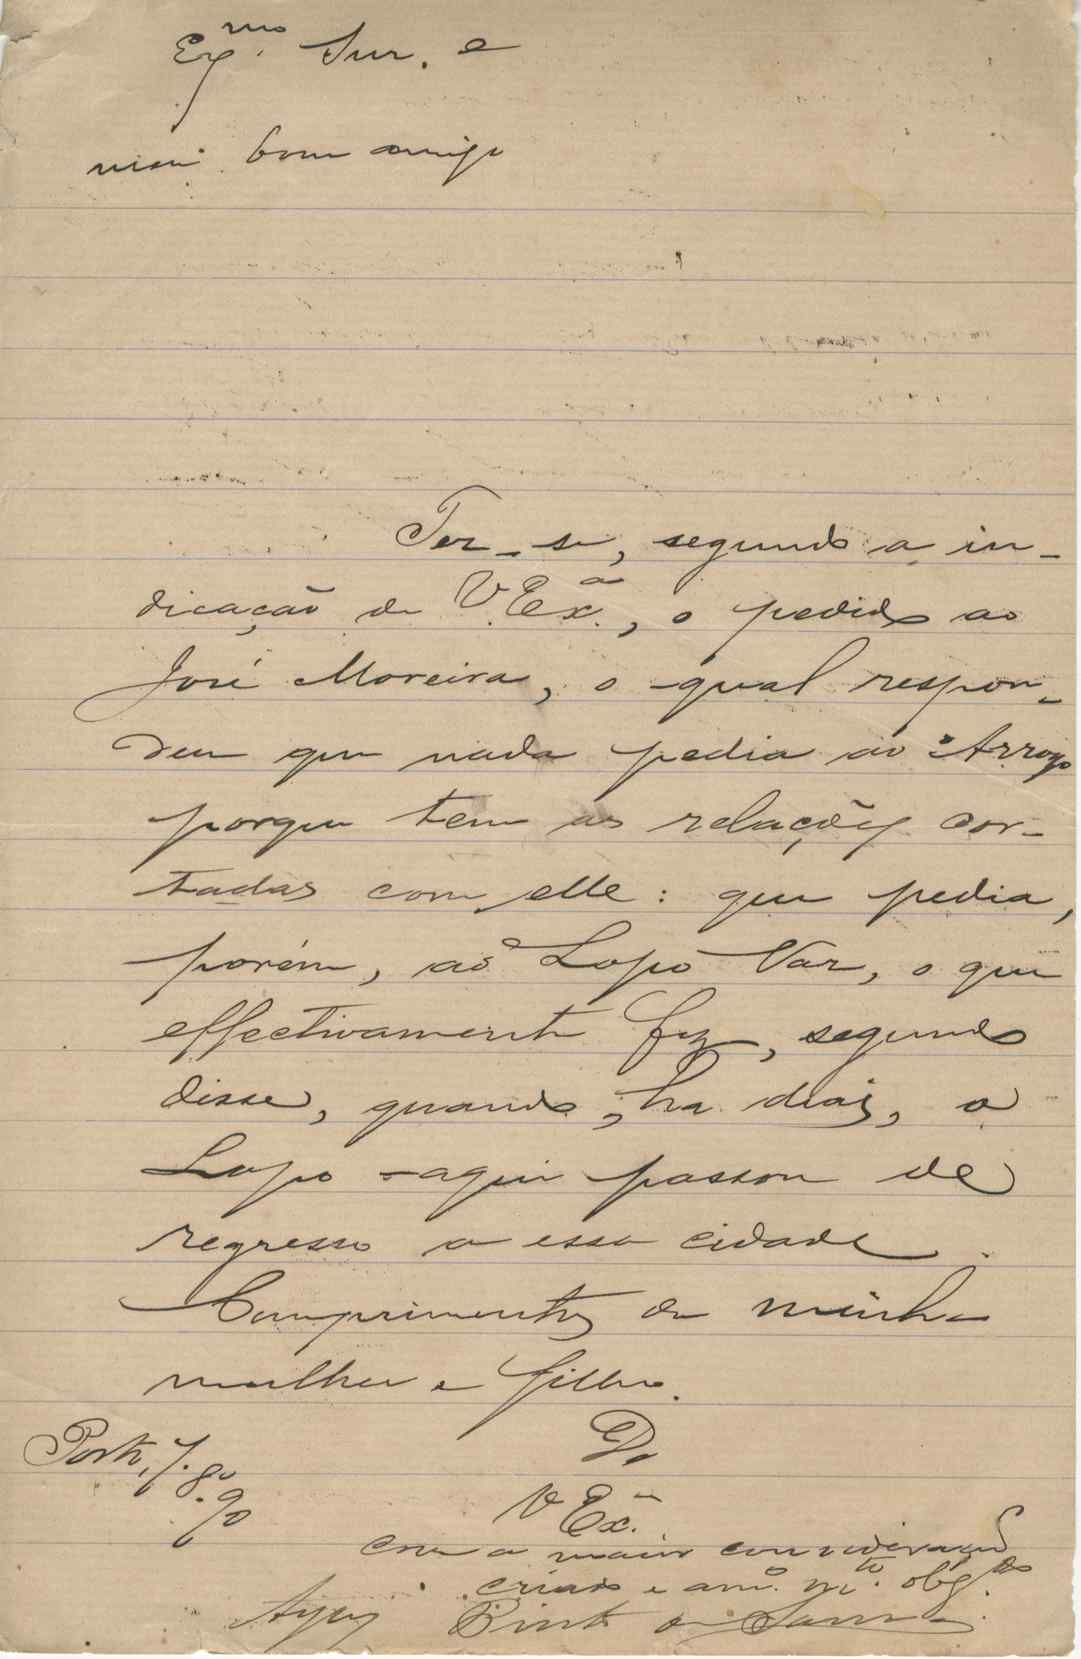 Ex.mo Snr. e
meu bom amigo
Fez-se, segundo a in-
dicação de V. Ex.a, o pedido ao
José Moreira, o qual respon-
deu que nada pedia ao Arroyo
porque tem as relações cor-
tadas com elle: que pedia,
porém, ao Lopo Vaz, o que
effectivamente fez, segundo
disse, quando, ha dias, o
Lopo aqui passou de
regresso a essa cidade.
Cumprimentos de minha
mulher e filho.
Porto, 7.8º.90
De
V Ex.a
com a maior consideração
criado e am.o m.to obg.do
Pinto de